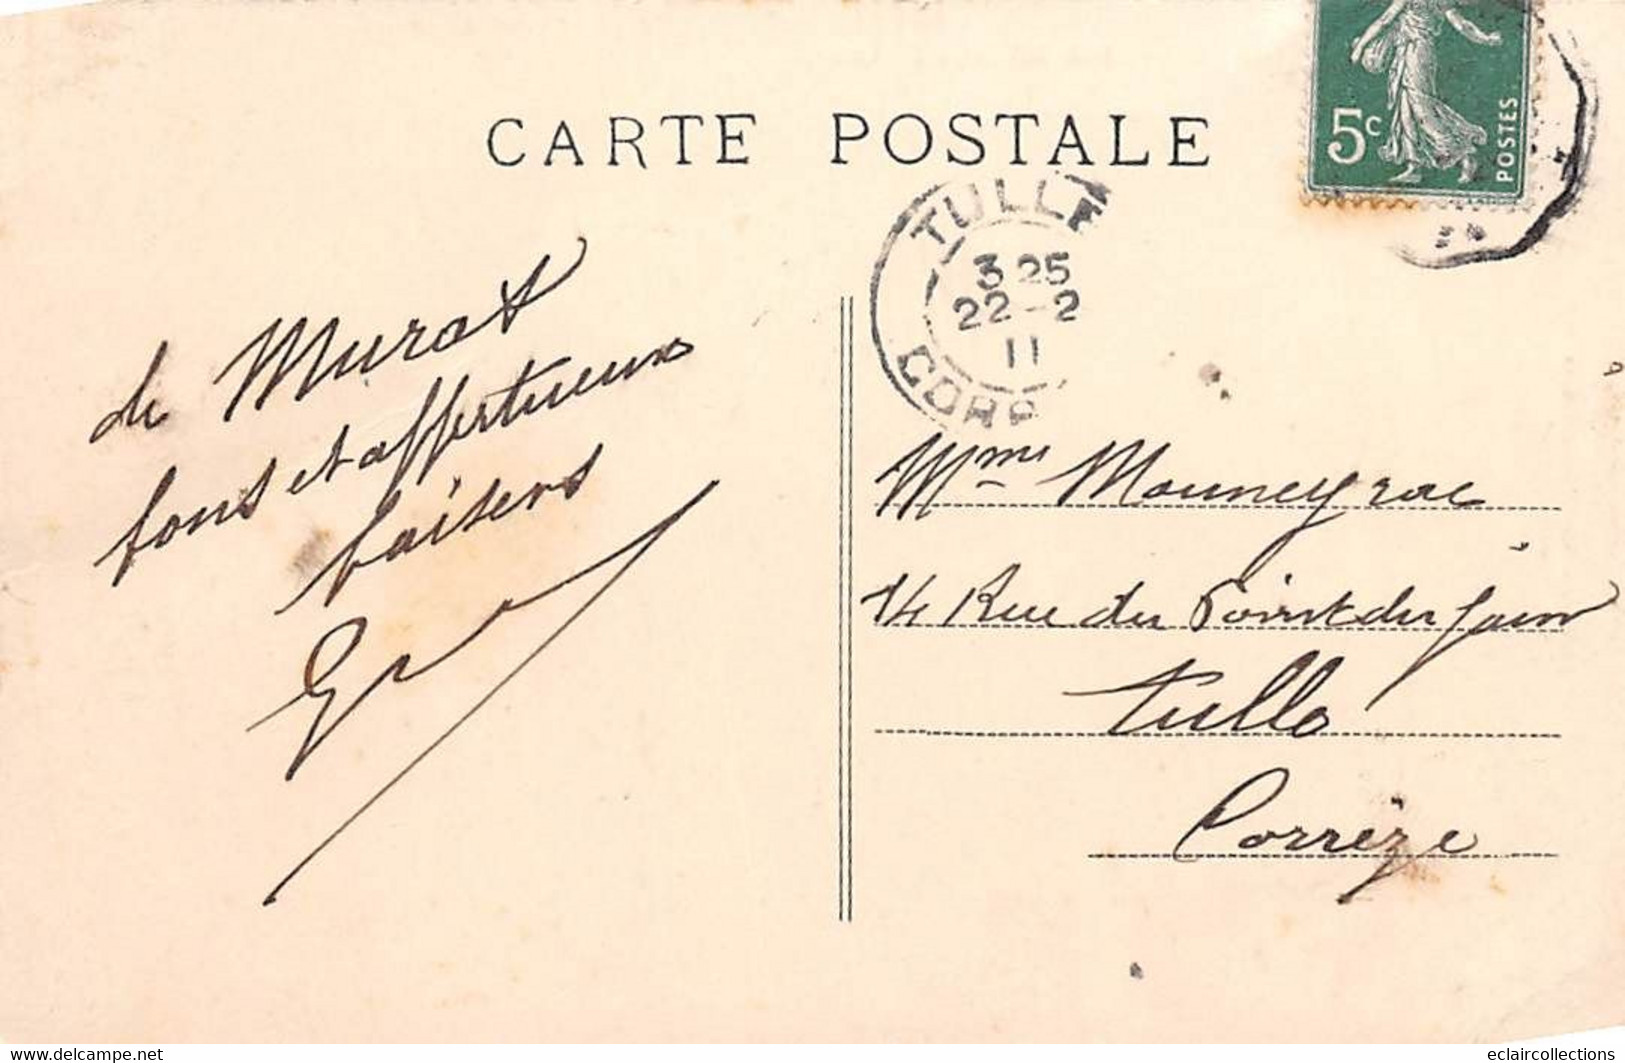 CARTE POSTALE
5c
POSTES
TULLE
3 25
22-2
11
CORR
de Murat
bons et affectueux
baisers
Mme Mouneyrac
14 Rue du Point du Jour
Tulle
Corrèze
www.delcampe.net
eclaircollections